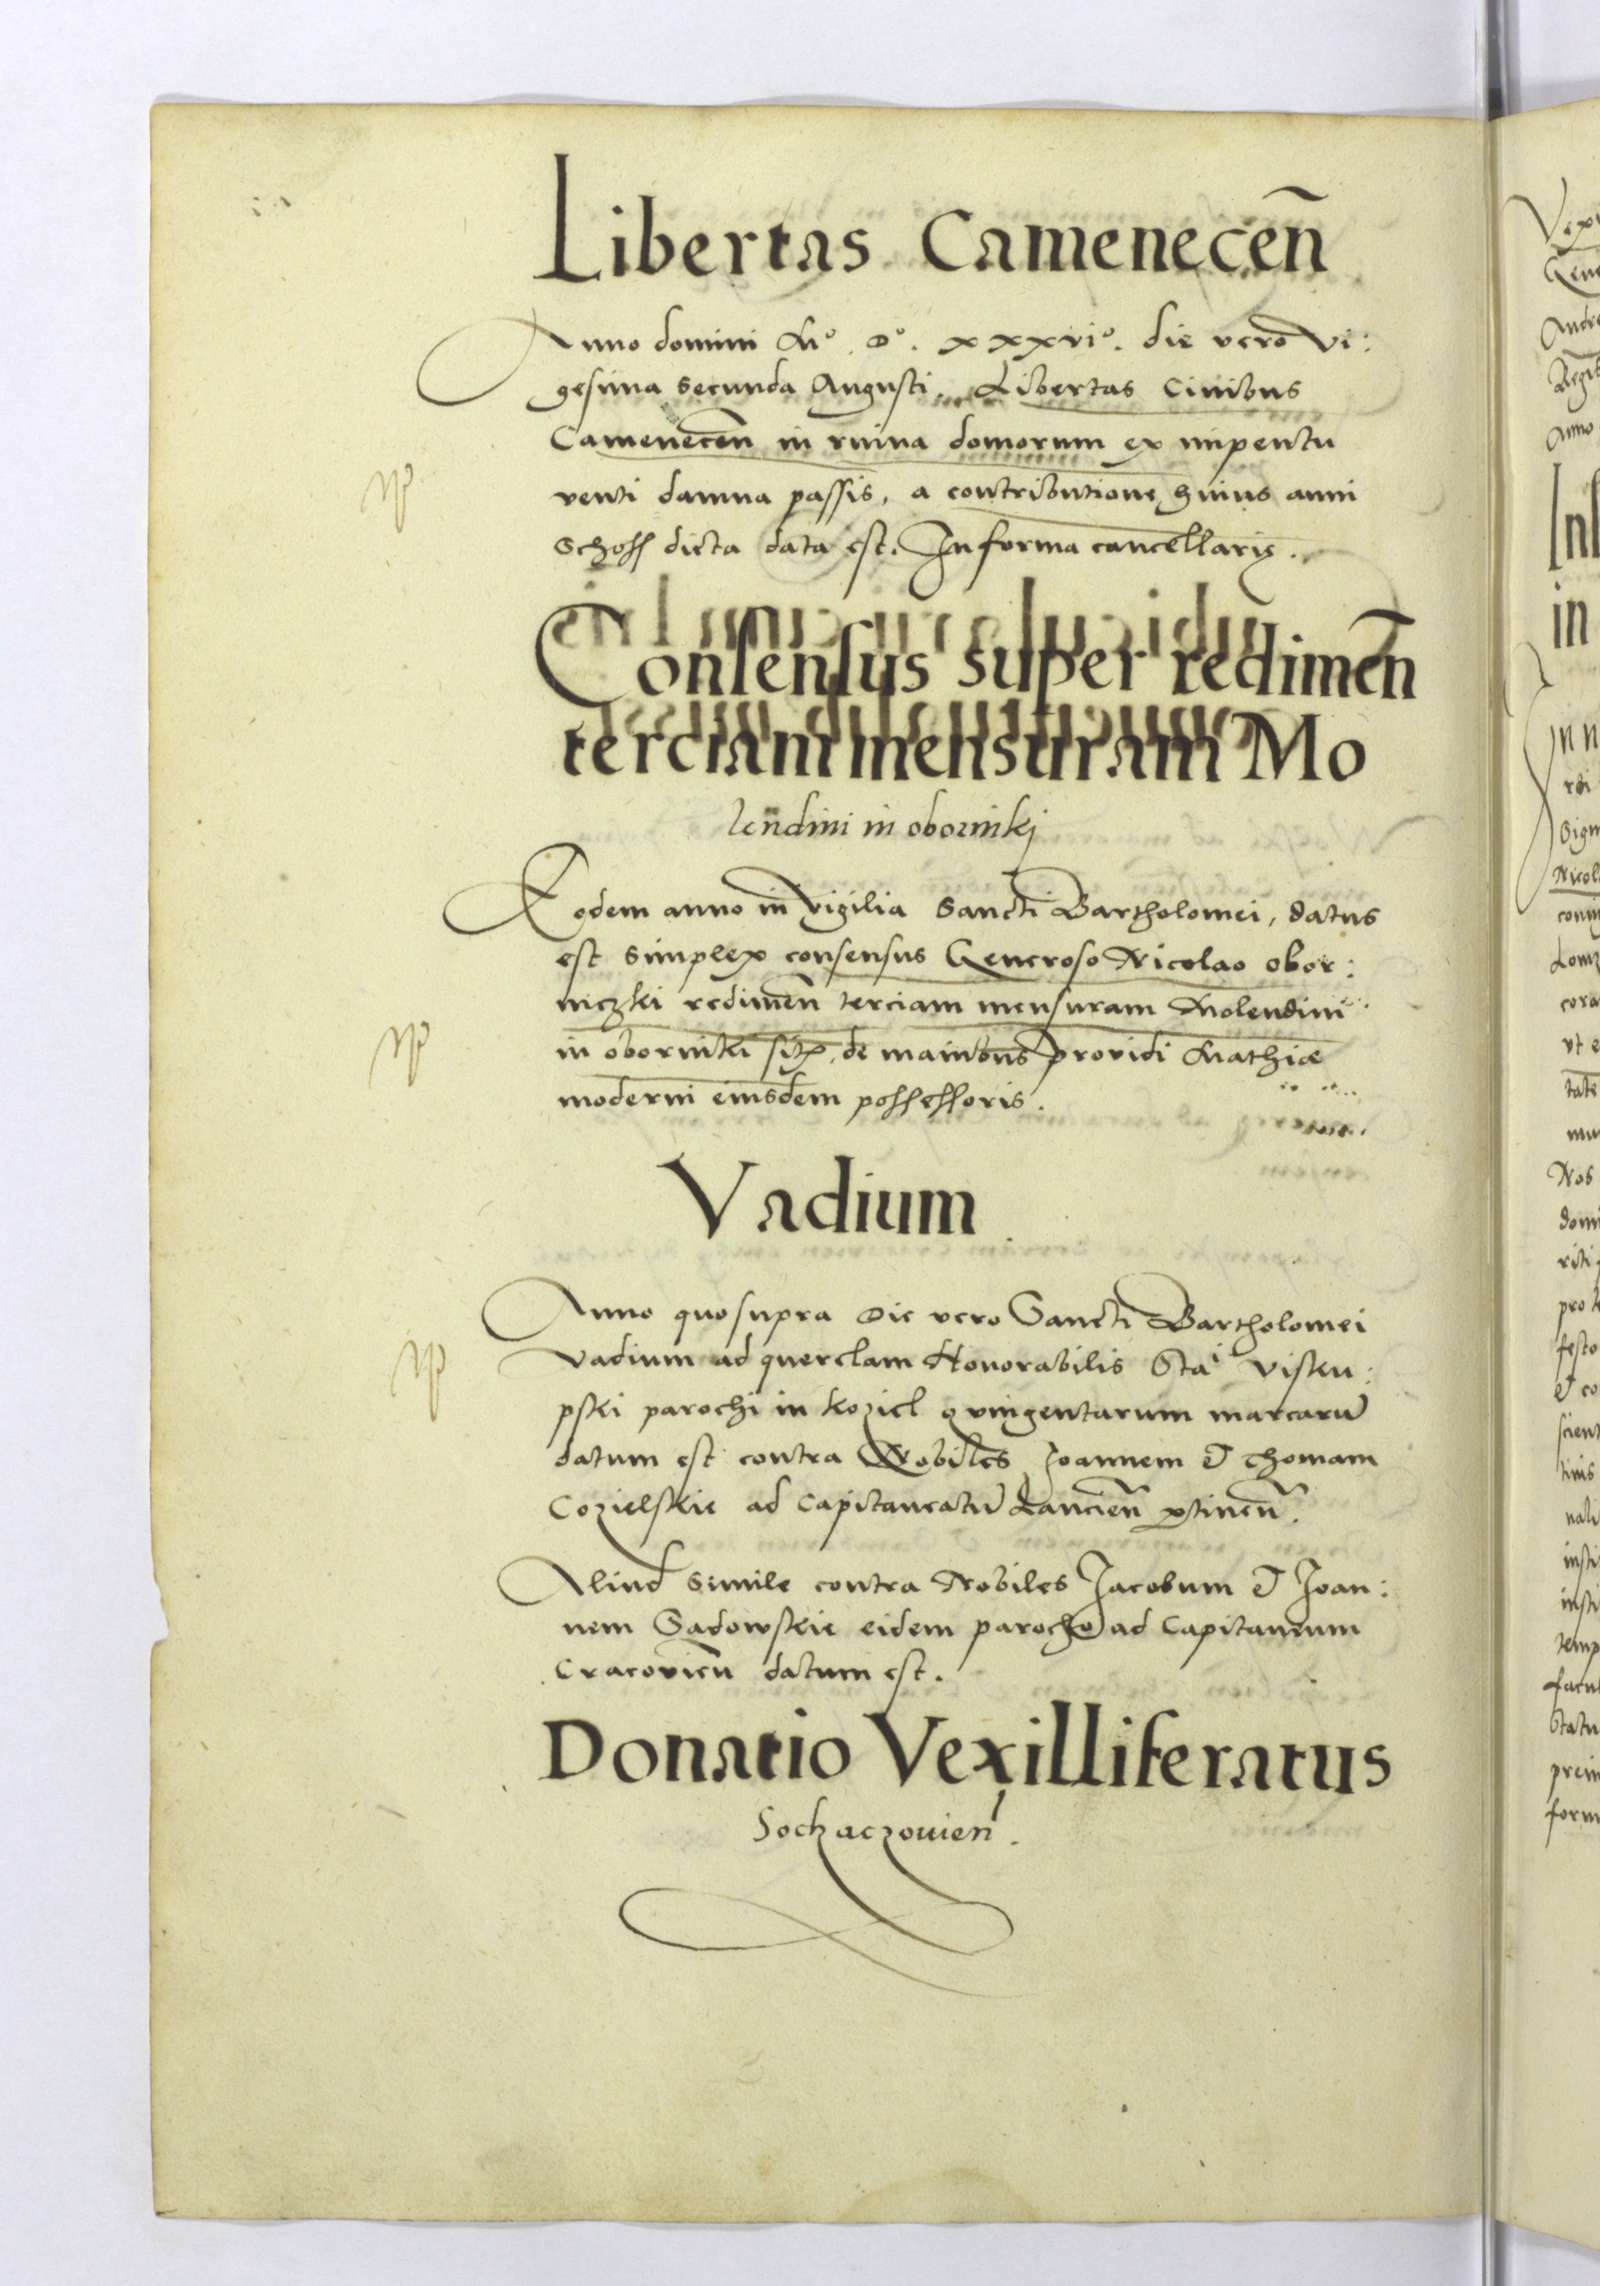 Libertas Camenecen̄
Anno domini Mº. Dº. xxxviº. die vero Vi:
gesima Secunda Augusti. Libertas Civibus
Camenecen̄ in ruina domorum ex impentu
venti damna passis, a contributione huius anni
Schoss dicta data est. In forma cancellarię.
Consensus super redimen̄
terciam mensuram Mo
lendini in obornikj
Eodem anno in Vigilia Sancti Bartholomei, datus
est Simplex consensus Generoso Nicolao obor:
niczki redimen̄ terciam mensuram Molendini
in oborniki de manibus providi Mathiæ
moderni eiusdem possessoris.
Vadium
Anno quo supra Die vero Sancti Bartholomei
Vadium ad querelam Honorabilis Stai Visku:
pski parochi in koziel quingentarum marcarū
datum est contra Nobiles Joannem & Thomam
Cozielskie ad Capitaneatū Lancien̄ ꝑtinen̄.
Aliud Simile contra Nobiles Jacobum & Joan:
nem Sadowskie eidem parocho ad Capitaneum
Cracovien̄ datum est.
Donatio Vexilliferatus
Sochaczouien̄.